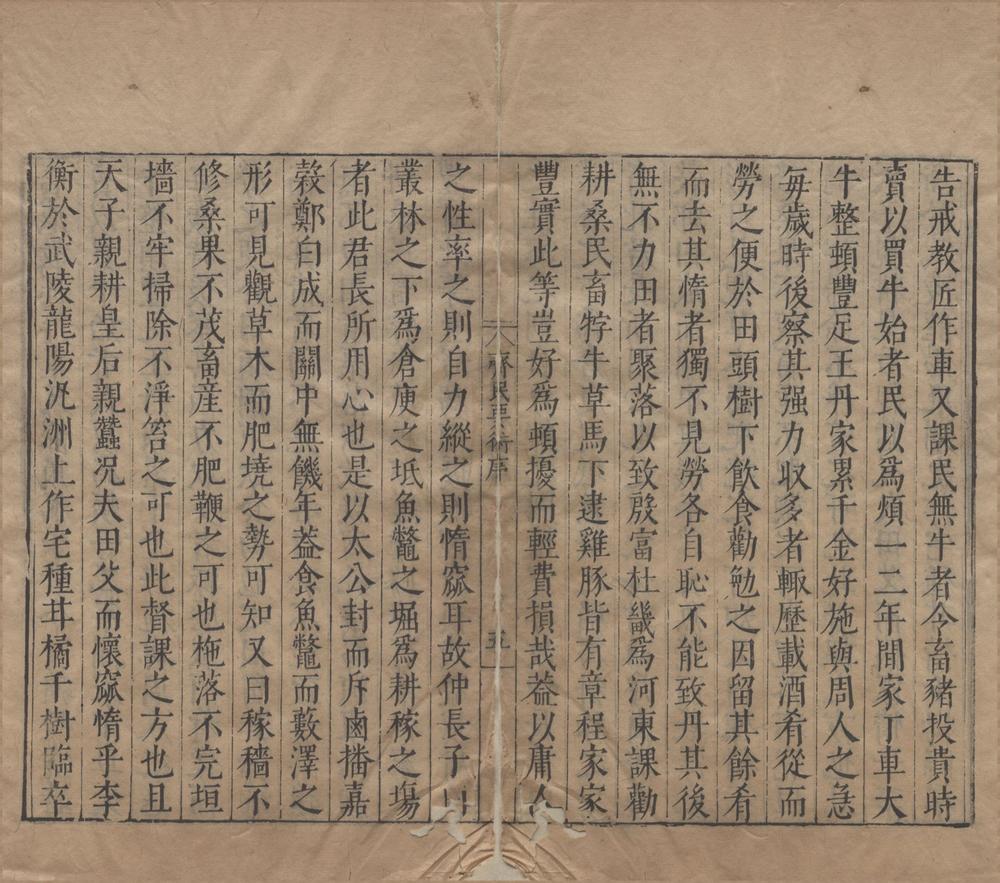 告戒教匠作車又課民無牛者令畜豬投貴時
賣以買牛始者民以爲煩一二年間家丁車大
牛整頓豐足王丹家累千金好施與周人之急
每歲時後察其强力収多者輒歷載酒肴從而
勞之便於田頭樹下飲食勸勉之因留其餘肴
而去其惰者獨不見勞各自恥不能致丹其後
無不力田者聚落以致殷富杜畿爲河東課勸
耕桑民畜牸牛草馬下逮雞豚皆有章程家家
豐實此等豈好爲頓擾而輕費損哉葢以庸人
齊民要術序
五
之性率之則自力縱之則惰窳耳故仲長子曰
叢林之下爲倉庾之坻魚鼈之堀爲耕稼之塲
者此君長所用心也是以太公封而斥鹵播嘉
穀鄭白成而關中無饑年葢食魚鼈而藪澤之
形可見觀草木而肥墝之勢可知又曰稼穡不
修桑果不茂畜産不肥鞭之可也杝落不完垣
墻不牢掃除不淨笞之可也此督課之方也且
天子親耕皇后親蠶况夫田父而懷窳惰乎李
衡於武陵龍陽汎洲上作宅種甘橘千樹臨卒